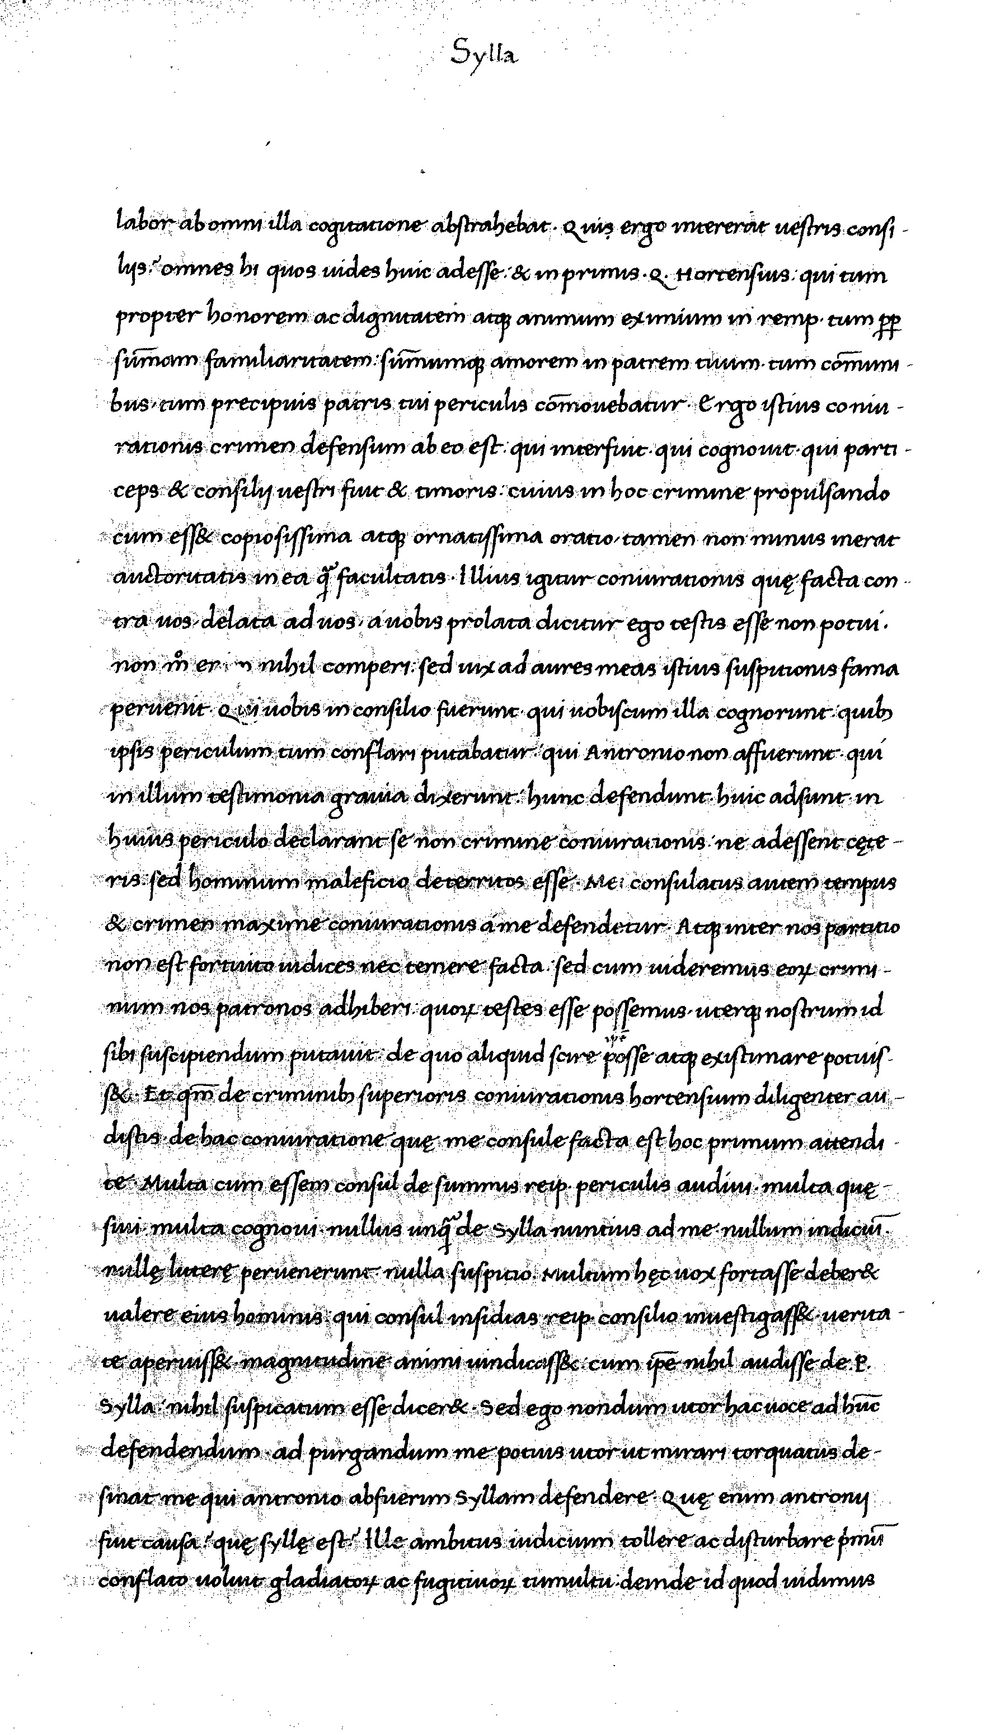 Sylla
labor ab omni illa cogitatione abstrahebat. Quis ergo intererat uestris consi-
liis? omnes hi quos uides huic adesse: & in primis Q. Hortensius: qui tum
propter honorem ac dignitatem atq; animum eximium in remp. tum ꝓp
sum̄am familiaritatem: sum̄umq; amorem in patrem tuum. tum com̄uni-
bus. tum precipuis patris tui periculis com̄ouebatur. Ergo istius coniu-
rationis crimen defensum ab eo est. qui interfuit. qui cognouit. qui parti-
ceps & consilij uestri fuit & timoris: cuius in hoc crimine propulsando
cum ess& copiosissima atq; ornatissima oratio. tamen non minus inerat
auctoritatis in ea q̃ facultatis. Illius igitur coniurationis quę facta con-
tra uos. delata ad uos. a uobis prolata dicitur ego testis esse non potui.
non nihil comperi. sed uix ad aures meas istius suspitionis fama
peruenit. Qui uobis in consilio fuerunt. qui uobiscum illa cognorunt. quib;
ipsis periculum tum conflari putabatur. qui Antronio non affuerunt. qui
in illum testimonia grauia dixerunt: hunc defendunt. huic adsunt. in
huius periculo declarant se non crimine coniurationis. ne adessent cęte-
ris. sed hominum maleficio deterritos esse. Mei consulatus autem tempus
& crimen maxime coniurationis a me defendetur. Atq; inter nos partitio
non est fortuito iudices nec temere facta. sed cum uideremus eoꝝ crimi-
num nos patronos adhiberi. quoꝝ testes esse possemus. uterq; nostrum id
sibi suscipiendum putauit. de quo aliquid scire posse atq; existimare potuis-
s&. Et qm̄ de criminib; superioris coniurationis hortensium diligenter au-
distis. de hac coniuratione quę me consule facta est hoc primum attendi-
te. Multa cum essem consul de summis reip. periculis audiui. multa quę-
siui. multa cognoui. nullus unq̃ de Sylla nuntius ad me. nullum indiciū.
nullę litterę peruenerunt. nulla suspitio. Multum hęc uox fortasse deber&
ualere eius hominis. qui consul insidias reip. consilio inuestigass&. uerita-
te aperuiss&. magnitudine animi uindicass&. cum ip̄e nihil audisse de P.
Sylla. nihil suspicatum esse dicer&. Sed ego nondum utor hac uoce ad hūc
defendendum. ad purgandum me potius utor ut mirari torquatus de-
sinat me qui antronio abfuerim Syllam defendere. Quę enim antronij
fuit causa? quę syllę est? Ille ambitus iudicium tollere ac disturbare p̓mū
conflato uoluit gladiatoꝝ ac fugitiuoꝝ tumultu. deinde id quod uidimus